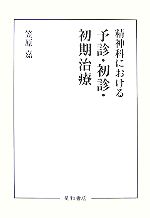 精神科における
予診・初診・
初期治療
笠原 嘉
星和書店